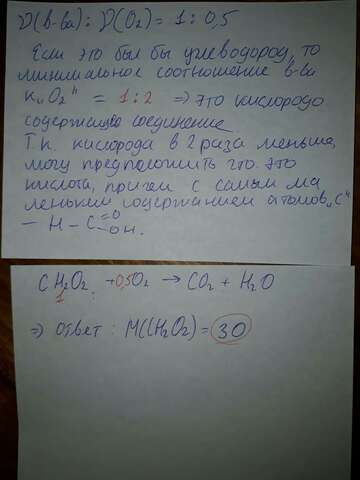 ν(в-ва) : ν(O₂) = 1 : 0,5
Если это был бы углеводород, то
минимальное соотношение в-ва
к „O₂" = 1:2 ⇒ это кислородо
содержащее соединение.
Т.к. кислорода в 2 раза меньше,
могу предположить что это
кислота, причем с самым ма
леньким содержанием атомов „С"
— H - C =O OH.
CH₂O₂ + 0,5O₂ → CO₂ + H₂O
1 :
⇒ ответ : M(CH₂O₂) = 30